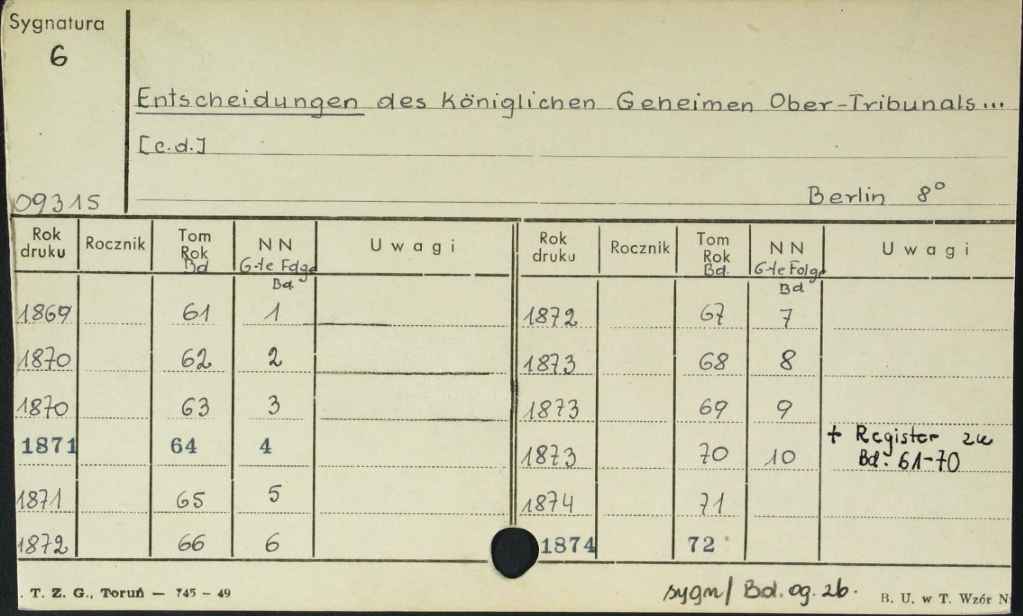 Sygnatura
6
Entscheidungen des Königlichen Geheimen Ober-Tribunals...
[c.d.]
09315
Berlin 8°
Rok druku Rocznik Tom Rok Bd NN 6-te Folge Bd Uwagi Rok druku Rocznik Tom Rok Bd. NN 6-te Folge Bd Uwagi
1869 61 1 1872 67 7
1870 62 2 1873 68 8
1870 63 3 1873 69 9
1871 64 4 1873 70 10 + Register zu Bd. 61-70
1871 65 5 1874 71
1872 66 6 1874 72
T. Z. G., Toruń — 745 — 49
sygn/ Bd. og. 26.
B. U. w T. Wzór N